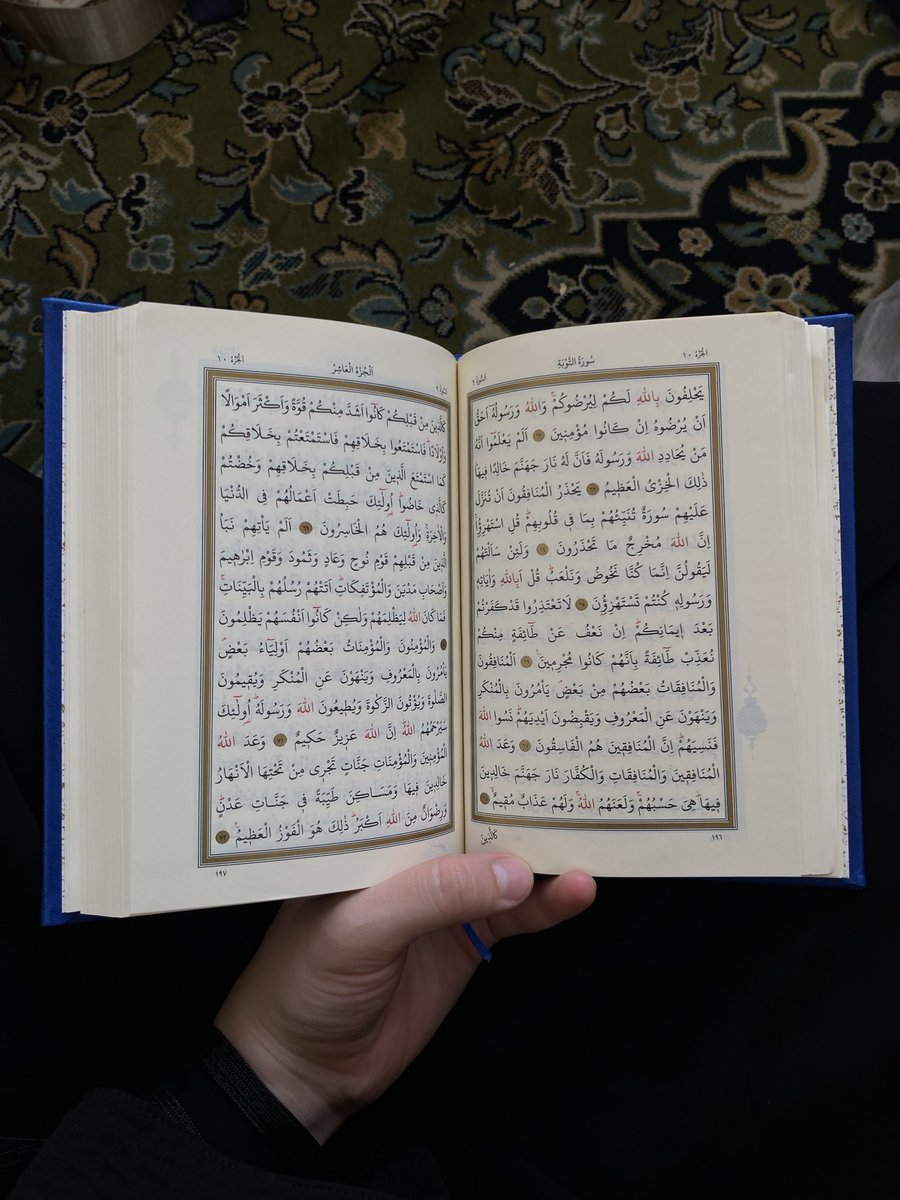 الجزء ١٠
سُورَةُ التَّوْبَةِ
السورة ٩
يَحْلِفُونَ بِاللّٰهِ لَكُمْ لِيُرْضُوكُمْۚ وَاللّٰهُ وَرَسُولُهُٓ اَحَقُّ
اَنْ يُرْضُوهُ اِنْ كَانُوا مُؤْمِنِينَ ٦٢ اَلَمْ يَعْلَمُٓوا اَنَّهُ
مَنْ يُحَادِدِ اللّٰهَ وَرَسُولَهُ فَاَنَّ لَهُ نَارَ جَهَنَّمَ خَالِدًا فِيهَاۜ
ذٰلِكَ الْخِزْىُ الْعَظِيمُ ٦٣ يَحْذَرُ الْمُنَافِقُونَ اَنْ تُنَزَّلَ
عَلَيْهِمْ سُورَةٌ تُنَبِّئُهُمْ بِمَا فِى قُلُوبِهِمْۜ قُلِ اسْتَهْزِؤُ۫اۚ
اِنَّ اللّٰهَ مُخْرِجٌ مَا تَحْذَرُونَ ٦٤ وَلَئِنْ سَاَلْتَهُمْ
لَيَقُولُنَّ اِنَّمَا كُنَّا نَخُوضُ وَنَلْعَبُۜ قُلْ اَبِاللّٰهِ وَاٰيَاتِهِ
وَرَسُولِهِ كُنْتُمْ تَسْتَهْزِؤُ۫نَ ٦٥ لَا تَعْتَذِرُوا قَدْ كَفَرْتُمْ
بَعْدَ اِيمَانِكُمْۜ اِنْ نَعْفُ عَنْ طَٓائِفَةٍ مِنْكُمْ
نُعَذِّبْ طَٓائِفَةً بِاَنَّهُمْ كَانُوا مُجْرِمِينَ۟ ٦٦ اَلْمُنَافِقُونَ
وَالْمُنَافِقَاتُ بَعْضُهُمْ مِنْ بَعْضٍۢ يَاْمُرُونَ بِالْمُنْكَرِ
وَيَنْهَوْنَ عَنِ الْمَعْرُوفِ وَيَقْبِضُونَ اَيْدِيَهُمْۜ نَسُوا اللّٰهَ
فَنَسِيَهُمْۜ اِنَّ الْمُنَافِقِينَ هُمُ الْفَاسِقُونَ ٦٧ وَعَدَ اللّٰهُ
الْمُنَافِقِينَ وَالْمُنَافِقَاتِ وَالْكُفَّارَ نَارَ جَهَنَّمَ خَالِدِينَ
فِيهَاۜ هِىَ حَسْبُهُمْۚ وَلَعَنَهُمُ اللّٰهُۚ وَلَهُمْ عَذَابٌ مُقِيمٌۙ ٦٨
كَالَّذِينَ
١٩٦
السورة ٩
اَلْجُزْءُ الْعَاشِرُ
الجزء ١٠
كَالَّذِينَ مِنْ قَبْلِكُمْ كَانُٓوا اَشَدَّ مِنْكُمْ قُوَّةً وَاَكْثَرَ اَمْوَالًا
وَاَوْلَادًاۜ فَاسْتَمْتَعُوا بِخَلَاقِهِمْ فَاسْتَمْتَعْتُمْ بِخَلَاقِكُمْ
كَمَا اسْتَمْتَعَ الَّذِينَ مِنْ قَبْلِكُمْ بِخَلَاقِهِمْ وَخُضْتُمْ
كَالَّذِى خَاضُواۜ اُو۬لٰٓئِكَ حَبِطَتْ اَعْمَالُهُمْ فِى الدُّنْيَا
وَالْاٰخِرَةِۚ وَاُو۬لٰٓئِكَ هُمُ الْخَاسِرُونَ ٦٩ اَلَمْ يَاْتِهِمْ نَبَاُ
الَّذِينَ مِنْ قَبْلِهِمْ قَوْمِ نُوحٍ وَعَادٍ وَثَمُودَ وَقَوْمِ اِبْرٰهِيمَ
وَاَصْحَابِ مَدْيَنَ وَالْمُؤْتَفِكَاتِۜ اَتَتْهُمْ رُسُلُهُمْ بِالْبَيِّنَاتِۚ
فَمَا كَانَ اللّٰهُ لِيَظْلِمَهُمْ وَلٰكِنْ كَانُٓوا اَنْفُسَهُمْ يَظْلِمُونَ
٧٠ وَالْمُؤْمِنُونَ وَالْمُؤْمِنَاتُ بَعْضُهُمْ اَوْلِيَٓاءُ بَعْضٍۢ
يَاْمُرُونَ بِالْمَعْرُوفِ وَيَنْهَوْنَ عَنِ الْمُنْكَرِ وَيُقِيمُونَ
الصَّلٰوةَ وَيُؤْتُونَ الزَّكٰوةَ وَيُطِيعُونَ اللّٰهَ وَرَسُولَهُۜ اُو۬لٰٓئِكَ
سَيَرْحَمُهُمُ اللّٰهُۜ اِنَّ اللّٰهَ عَزِيزٌ حَكِيمٌ ٧١ وَعَدَ اللّٰهُ
الْمُؤْمِنِينَ وَالْمُؤْمِنَاتِ جَنَّاتٍ تَجْرِى مِنْ تَحْتِهَا الْاَنْهَارُ
خَالِدِينَ فِيهَا وَمَسَاكِنَ طَيِّبَةً فِى جَنَّاتِ عَدْنٍۜ
وَرِضْوَانٌ مِنَ اللّٰهِ اَكْبَرُۜ ذٰلِكَ هُوَ الْفَوْزُ الْعَظِيمُ۟ ٧٢
١٩٧